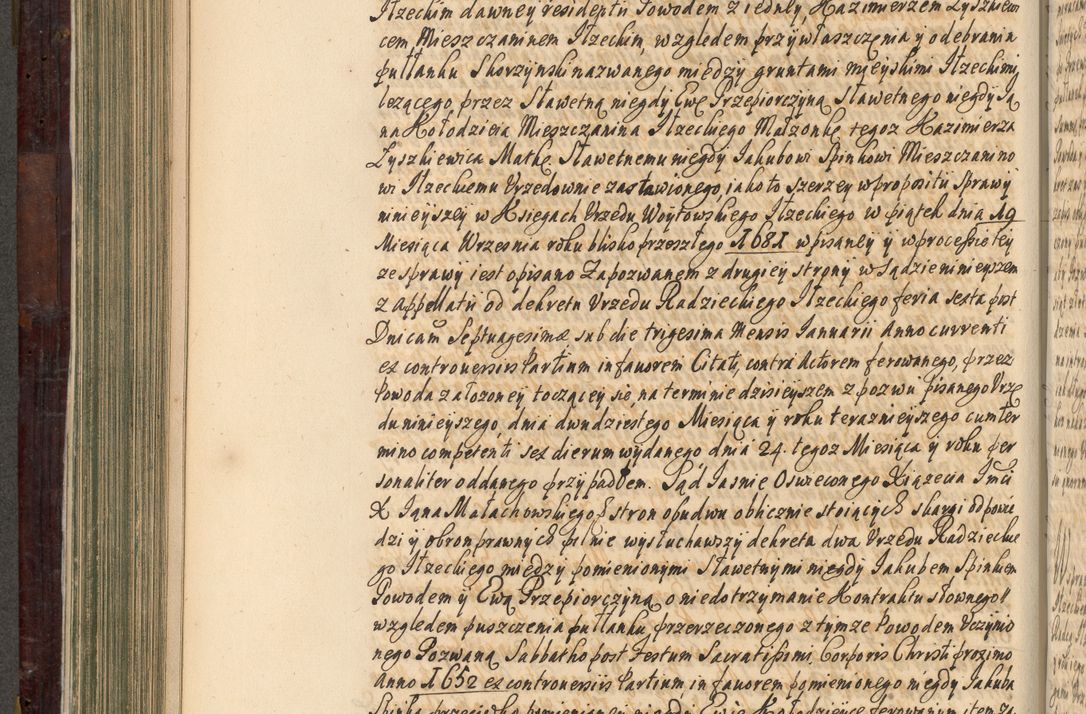 Jłzeckim dawney residenti Powodem z iedney, Kazimierzem Zyszkiewi
cem Mieszczaninem Jłzeckim, wzgledem przywłaszczęnia y odebrania
pułłanku Skorzynski nazwanego między gruntami mieyskimi Jłzeckimi
lezącego przez Sławetną niegdy Ewę Przepiorczyną Sławetnego niegdy Ja
na Kołodzieia Mieszczanina Jłzeckiego Małzonkę tegoz Kazimierza
Zyszkiewica Matkę. Sławetnemu niegdy Iakubowi Spinkowi Mieszczanino
wi Jłzeckiemu Vrzędownie zastawionego, iako to szerzey w propositu Sprawy
ninieyszey w Księgach Vrzędu Woytowskiego Jłzeckiego w piątek dnia 19
Miesiąca Wrzesnia roku blisko przeszłego 1681 wpisaney y w processie tey
ze sprawy iest opisano Zapozwanem z drugiey strony w Sądzie ninieyszem
z appellatij od dekretu Vrzędu Radzieckiego Jłzeckiego feria sexta post
Dnicam Septuagesimæ sub die trigesima Mensis Ianuarii Anno currenti
ex controuersiis Partium in fauorem Citati, contra Actorem ferowanego, przez
Powoda załozoney toczącey się na terminie dzisieyszem z pozwu pisanego Vrzę
du ninieyszego, dnia dwudziestego Miesiąca y roku teraznieyszego cum ter
mino competenti sex dierum wydanego dnia 24. tegoz Miesiąca y roku per
sonaliter oddanego przypadłem. Sąd Iasnie Oswieconego Xiązecia Jmci
X Iana Małachowskiego stron obudwu oblicznie stoiących skargi odpowie
dzi y obron prawnych pilnie wysłuchawszy dekreta dwa Vrzędu Radzieckie
go Jłzeckiego między pomienionymi Sławetnymi niegdy Iakubem Spinkiem
Powodem y Ewą Przepiorczyną o niedotrzymanie Kontraktu słownego
względem puszczenia pułłanku przerzeczonego z tymze Powodem Vczynio
nego Pozwaną Sabbatho post Festum Sacratissimi Corporis Christi proximo
Anno 1652 ex controuersiis Partium in fauorem pomienionego niegdy Iakuba
Spinka przeciwko pomienioney niegdy Ewie Kołodzieyce ferowanym item za